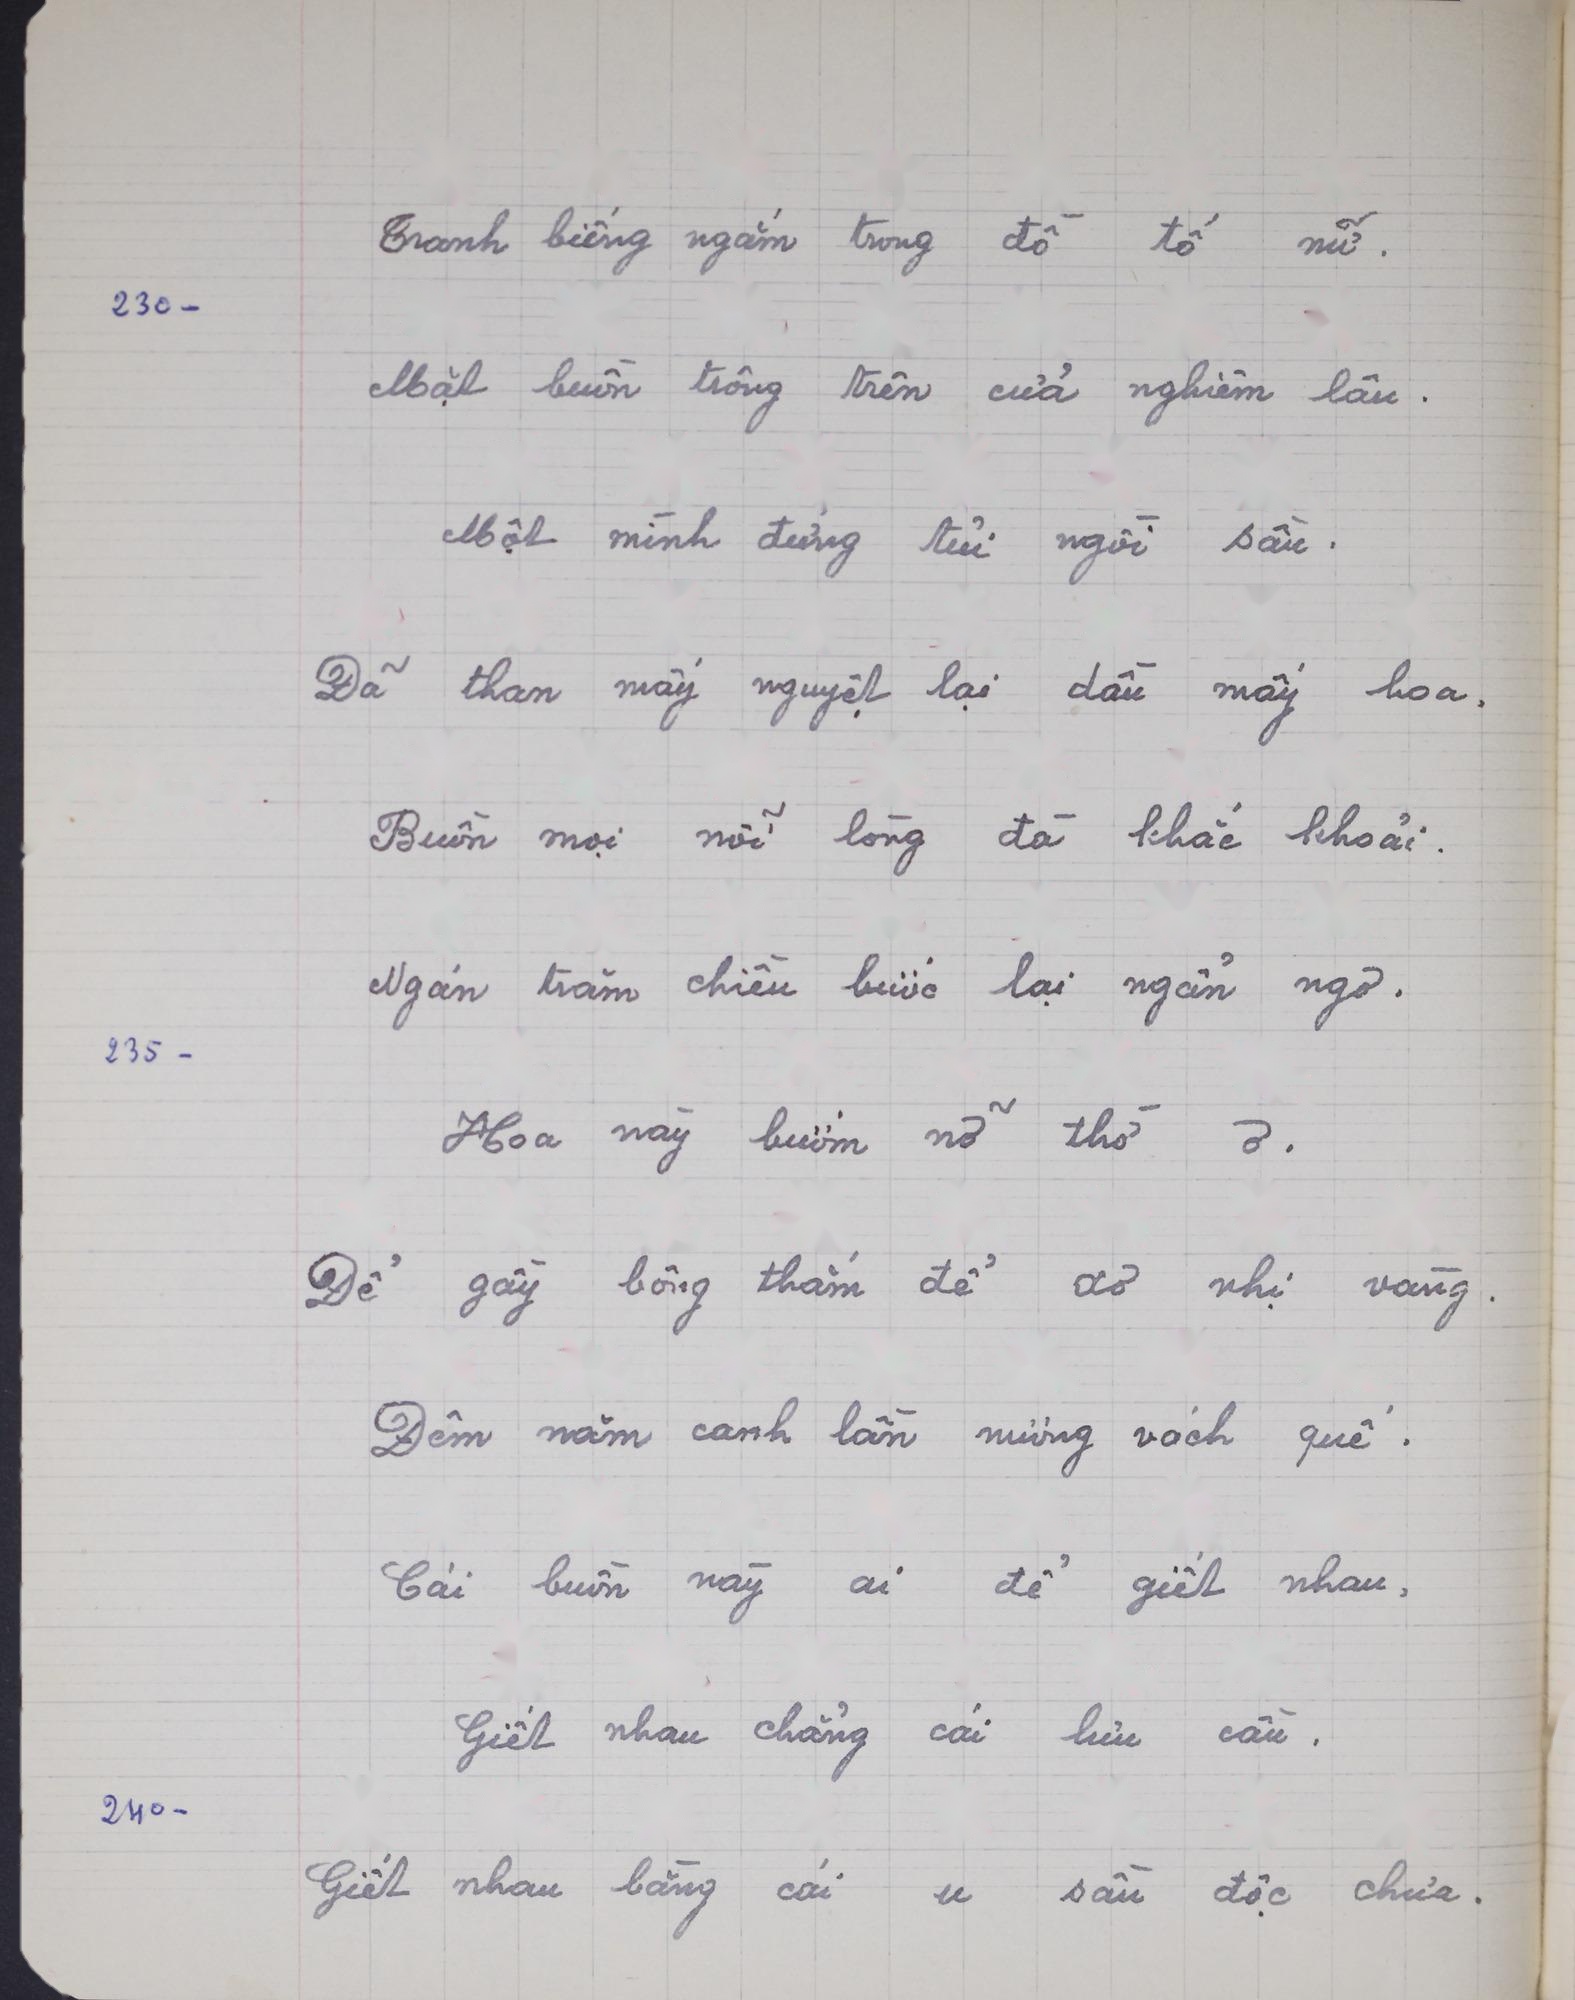 Tranh biếng ngắm trong đồ tố nữ.
230-
Mặt buồn trông trên cửa nghiêm lâu.
Một mình đứng tủi ngồi sầu.
Đã than mấy nguyệt lại dầu mấy hoa,
Buồn mọi nỗi lòng đà khắc khoải.
Ngán trăm chiều bước lại ngẩn ngơ.
235-
Hoa này bướm nỡ thờ ơ.
Để gầy bông thắm để xơ nhị vàng.
Đêm năm canh lần nương vách quế.
Cái buồn này ai để giết nhau,
Giết nhau chẳng cái lưu cầu.
240-
Giết nhau bằng cái u sầu độc chưa.